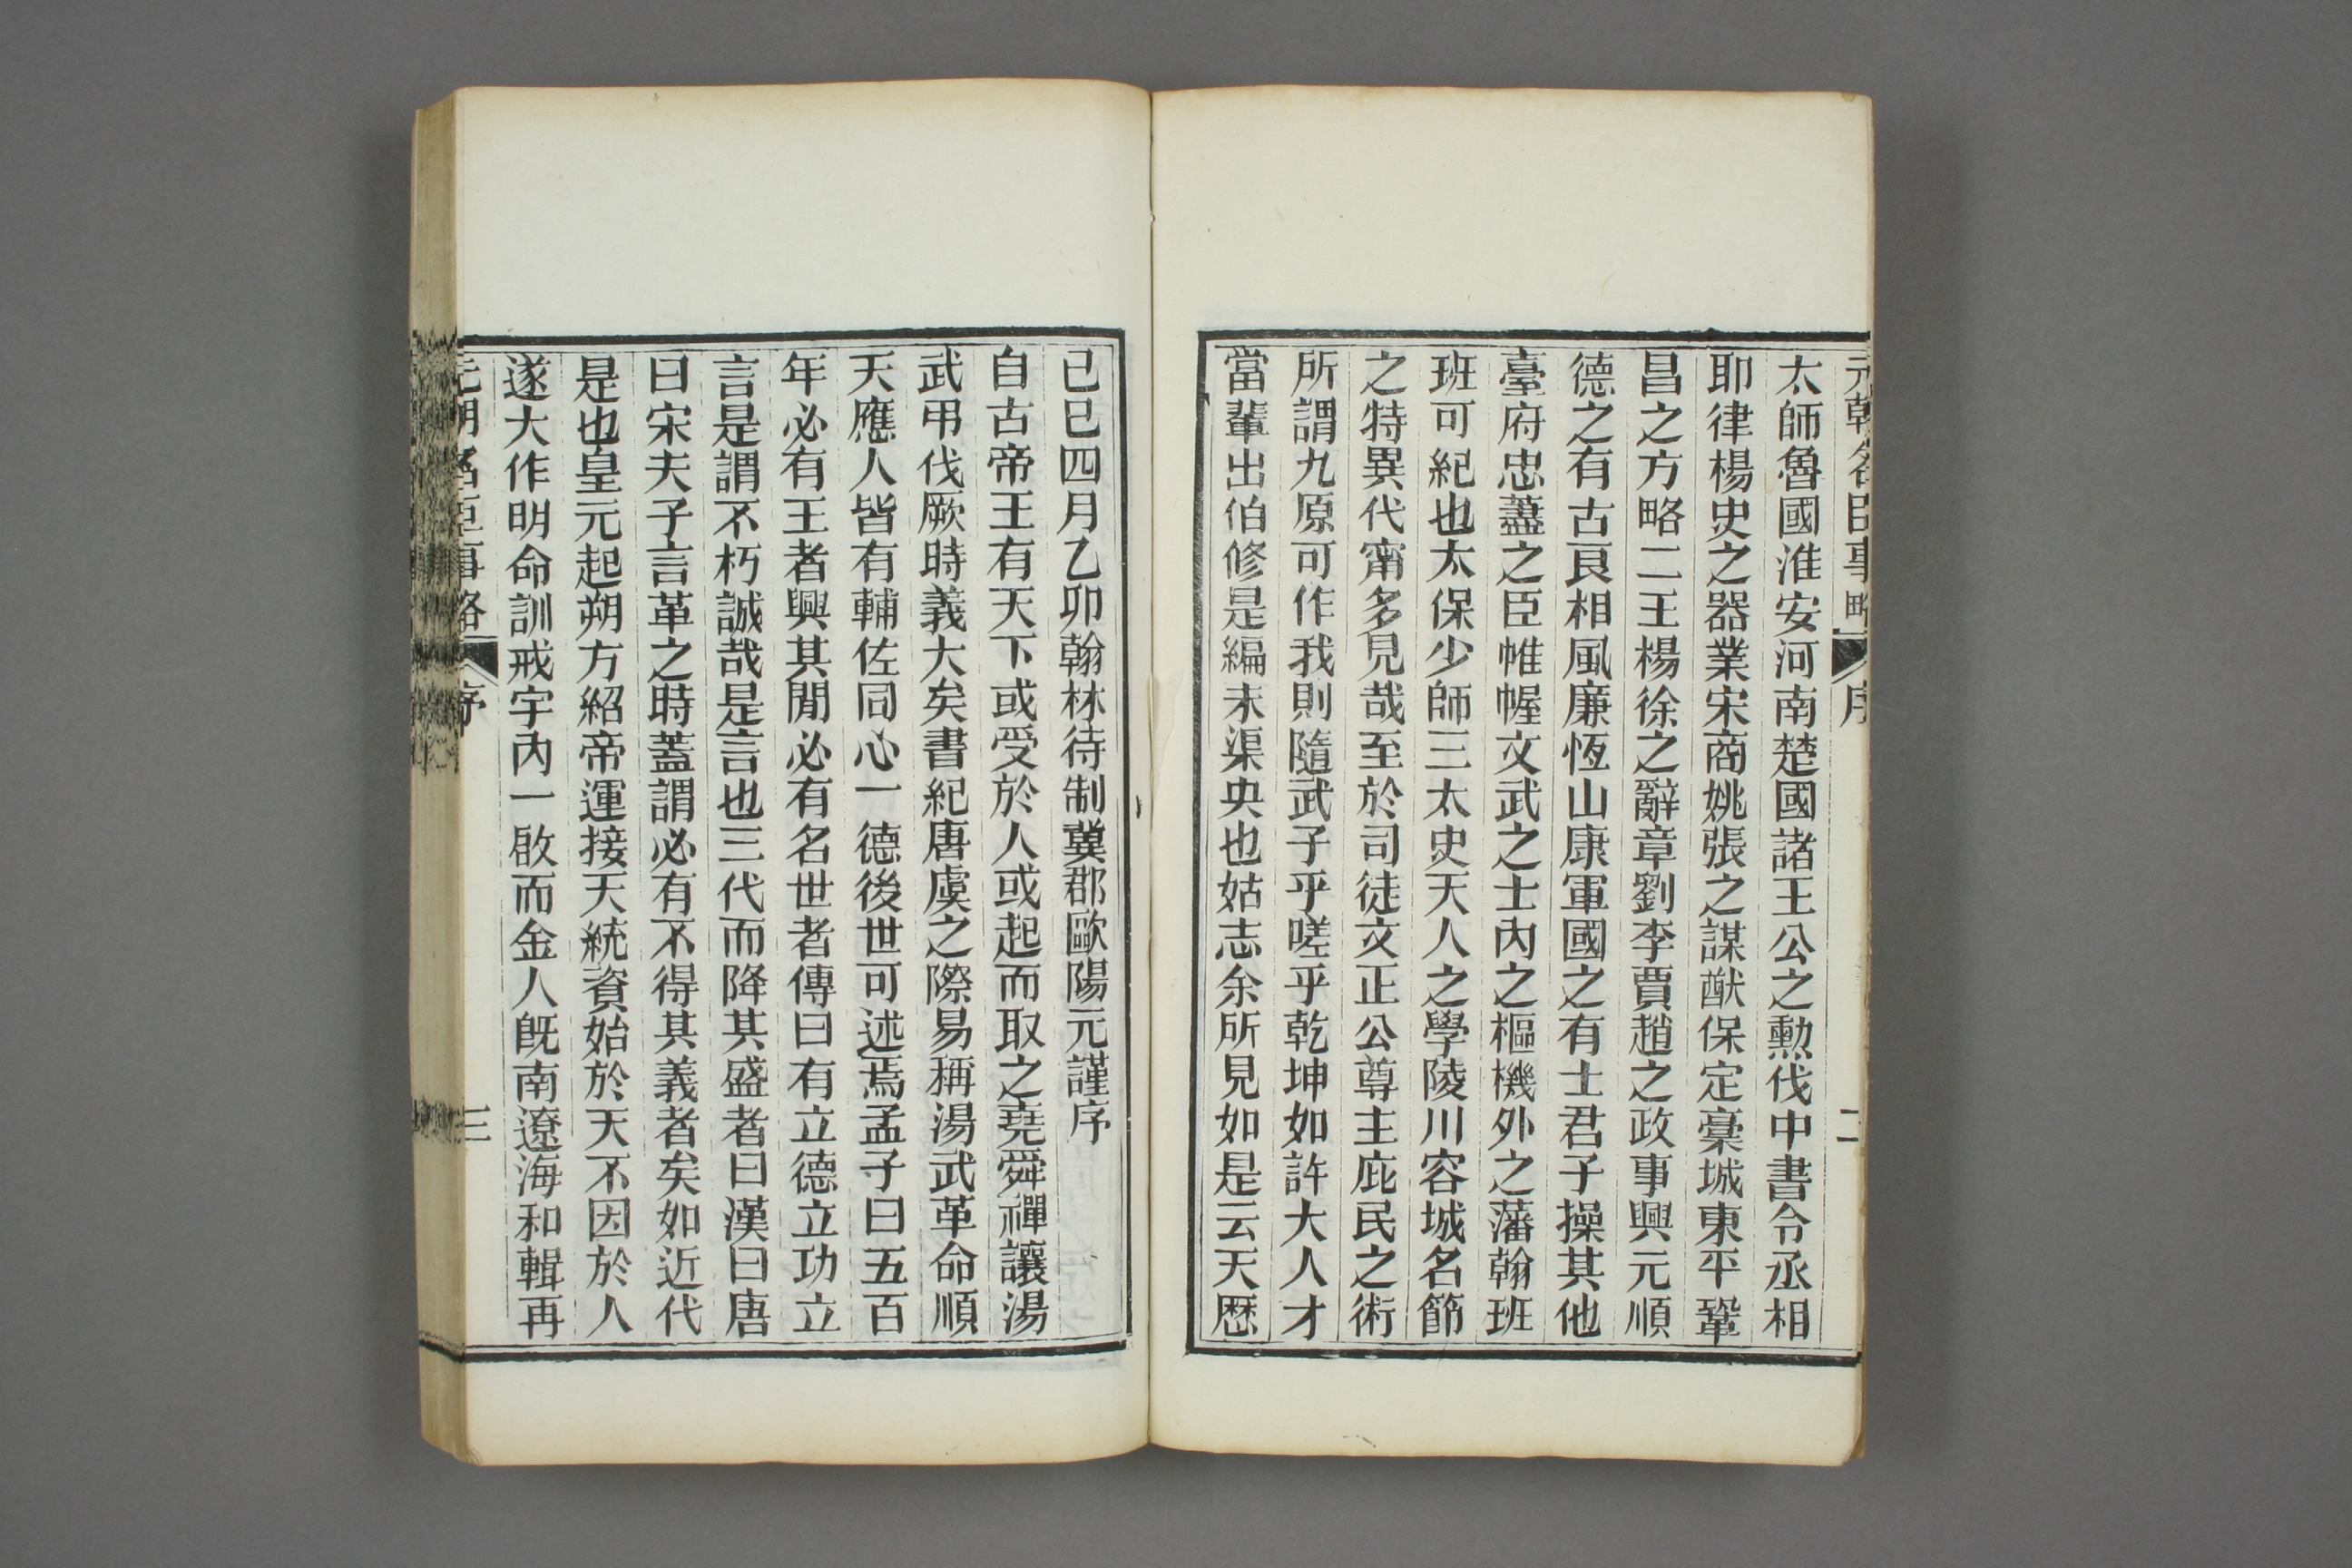 元朝名臣事略 序 二
太師魯國淮安河南楚國諸王公之勳伐中書令丞相
耶律楊史之器業宋商姚張之謀猷保定藁城東平鞏
昌之方略二王楊徐之辭章劉李賈趙之政事興元順
德之有古良相風廉恆山康軍國之有士君子操其他
臺府忠藎之臣帷幄文武之士內之樞機外之藩翰班
班可紀也太保少師三太史天人之學陵川容城名節
之特異代甯多見哉至於司徒文正公尊主庇民之術
所謂九原可作我則隨武子乎嗟乎乾坤如許大人才
當輩出伯修是編未渠央也姑志余所見如是云天歷
已巳四月乙卯翰林待制冀郡歐陽元謹序
自古帝王有天下或受於人或起而取之堯舜禪讓湯
武弔伐厥時義大矣書紀唐虞之際易稱湯武革命順
天應人皆有輔佐同心一德後世可述焉孟子曰五百
年必有王者興其閒必有名世者傳曰有立德立功立
言是謂不朽誠哉是言也三代而降其盛者曰漢曰唐
曰宋夫子言革之時蓋謂必有不得其義者矣如近代
是也皇元起朔方紹帝運接天統資始於天不因於人
遂大作明命訓戒宇內一啟而金人既南遼海和輯再
元朝名臣事略 序 三